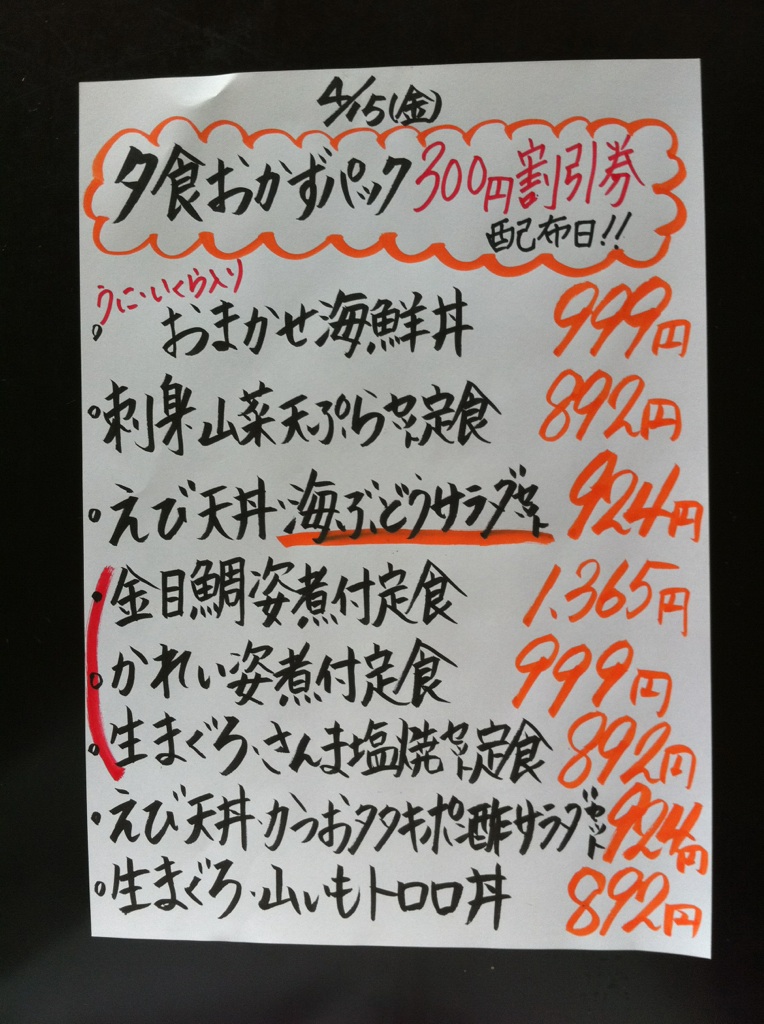 4/15(金)
夕食おかずパック300円割引券
配布日!!
うに・いくら入り
おまかせ海鮮丼 999円
刺身・山菜天ぷらセット定食 892円
えび天丼・海ぶどうサラダセット 924円
金目鯛姿煮付定食 1,365円
かれい姿煮付定食 999円
生まぐろ・さんま塩焼セット定食 892円
えび天丼・かつおタタキポン酢サラダセット 924円
生まぐろ・山いもトロロ丼 892円